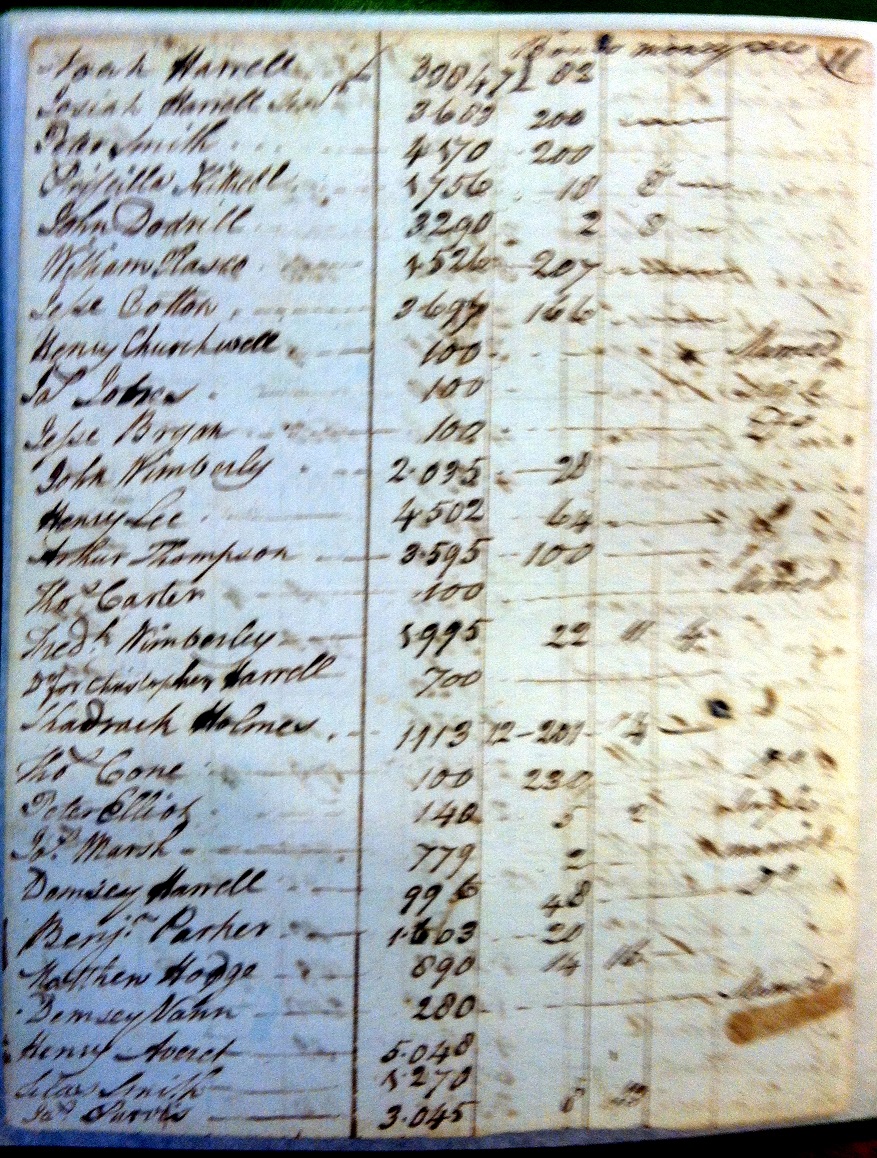 Bonds money &c 11
Noah Harrell 3904 82
Josiah Harrell 3603 200
Peter Smith 4170 200
Priscilla Kittrell 1756 18 8
John Dodrill 3290 2 8
William Rasco 1526 207
Jesse Cotton 3697 166
Henry Churchwell 100 Married
Jas 100
Jesse Bryan 100 Do
John Wimberly 2.035 28
Henry Lee 4.502 64
Arthur Thompson 3.595 100
Thos Carter 100 Married
Fredk Wimberley 1995 22 11 4
Do for Christopher Harrell 700
Shadrach Holmes 1913 201 14
Thos Cone 100 230 Do
Peter Elliot 140 5 2
Jas Marsh 779 2 married
Demsey Harrell 996 48 Do
Benjn Parker 1.603 20
Matthew Hodge 890 14 16
Demsey Vann 280 Married
Henry Averet 5.048
Silas Smith 1.270
Jas Purvis 3.045